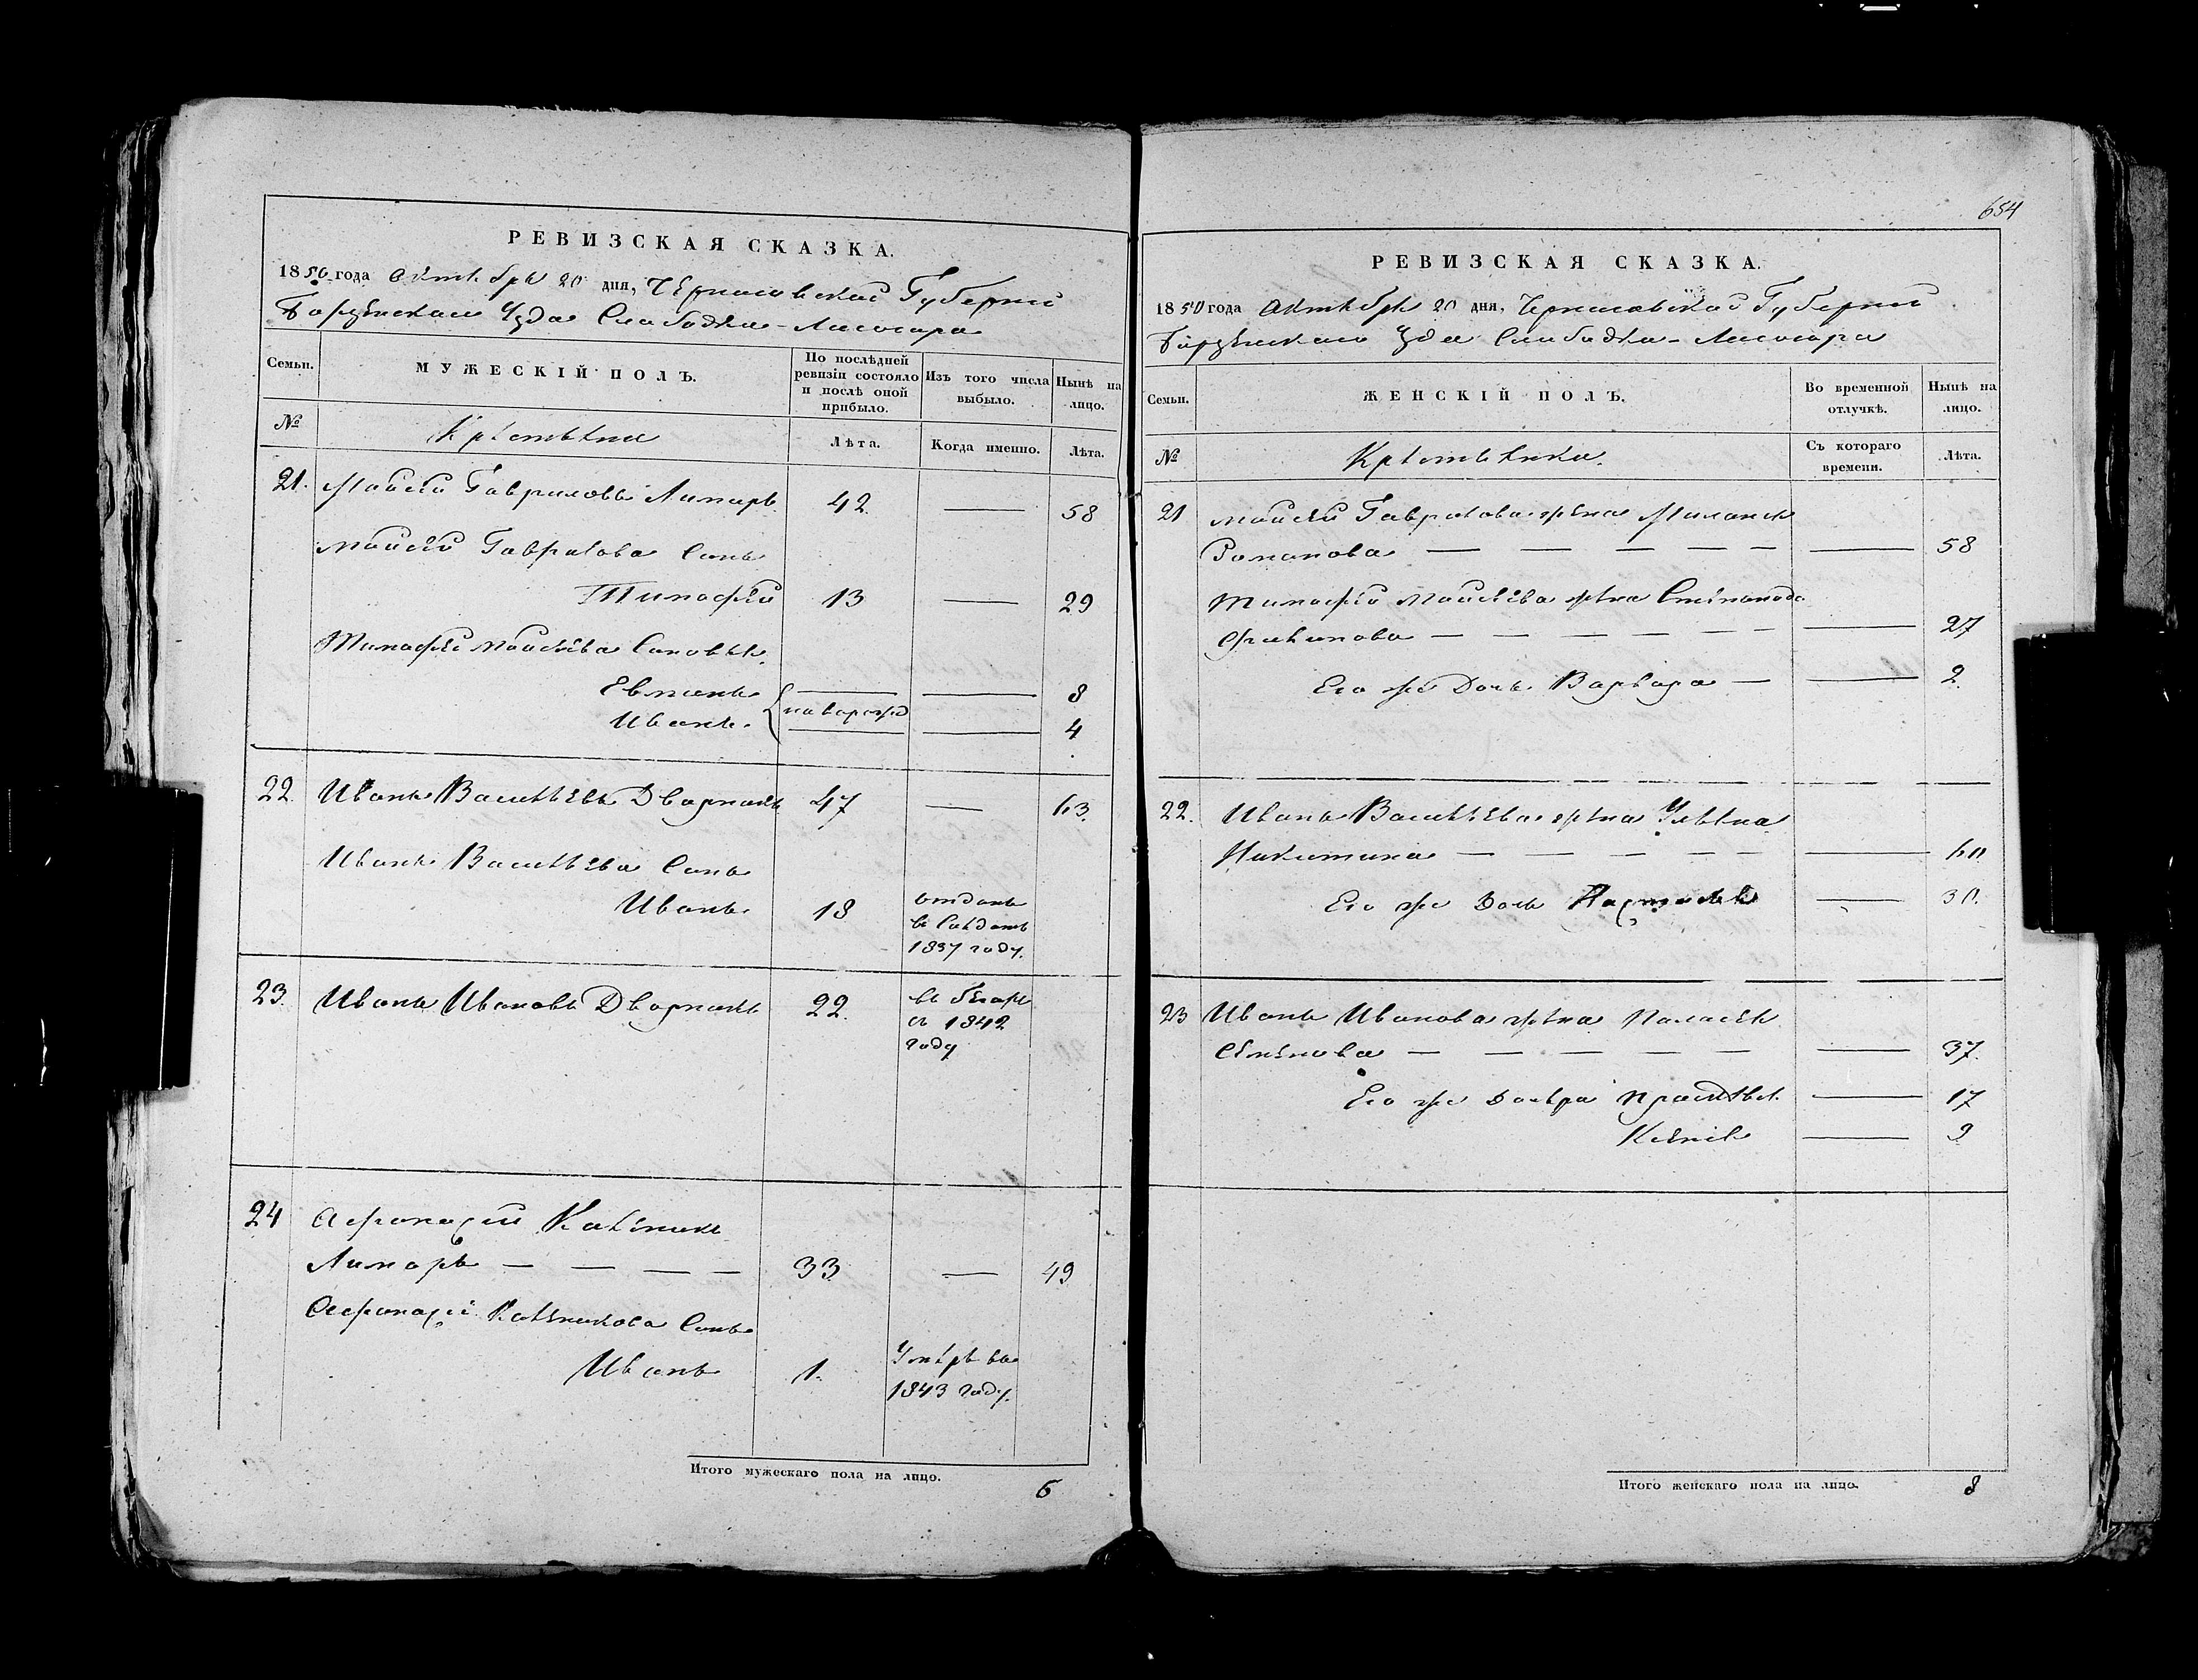 РЕВИЗСКАЯ СКАЗКА.
1850 года Октября 20 дня, Черниговской Губерніи
Борзенскаго Уезда Слободка-Лисогора
Семьи.
МУЖЕСКІЙ ПОЛЪ.
По послѣдней ревизіи состояло и послѣ оной прибыло.
Изъ того числа выбыло.
Нынѣ на лицо.
№
Крестьяне
Лѣта.
Когда именно.
Лѣта.
21. Моисей Гавриловъ Лимарь 42. — 58
Моисея Гаврилова Сынъ
Тимофей 13 — 29
Тимофея Моисеева Сыновья
Евтихъ — — 8
новорожд
Иванъ. — — 4
22. Иванъ Васильевъ Дворникъ 47 — 63.
Ивана Васильева Сынъ
Иванъ 18 отданъ
въ Солдаты
1837 году.
23. Иванъ Ивановъ Дворникъ 22. въ бегахъ
съ 1842
году
24 Афонасій
Лимарь — — — — 33 — 49
Афонасія Сынъ
Иванъ 1. Умеръ въ
1843 году.
Итого мужескаго пола на лицо. 6
654
РЕВИЗСКАЯ СКАЗКА.
1850 года Октября 20 дня, Черниговской Губерніи
Борзенскаго Уезда Слободка-Лисогора
Семьи.
ЖЕНСКІЙ ПОЛЪ.
Во временной отлучкѣ.
Нынѣ на лицо.
№
Крестьянки.
Съ котораго времени.
Лѣта.
21 Моисея Гаврилова жена Миланья
Романова — — — — — — 58
Тимофея Моисеева жена Степанида
Филипова — — — — — — 27
Его же Дочь Варвара — — 2.
22. Ивана Васильева жена Ульяна
Никитина — — — — — — 60
Его же Дочь — 30.
23 Ивана Иванова жена Паласея
Семенова — — — — — — 37.
Его же Дочери Прасковья — 17
Ксенія — 9
Итого женскаго пола на лицо. 8